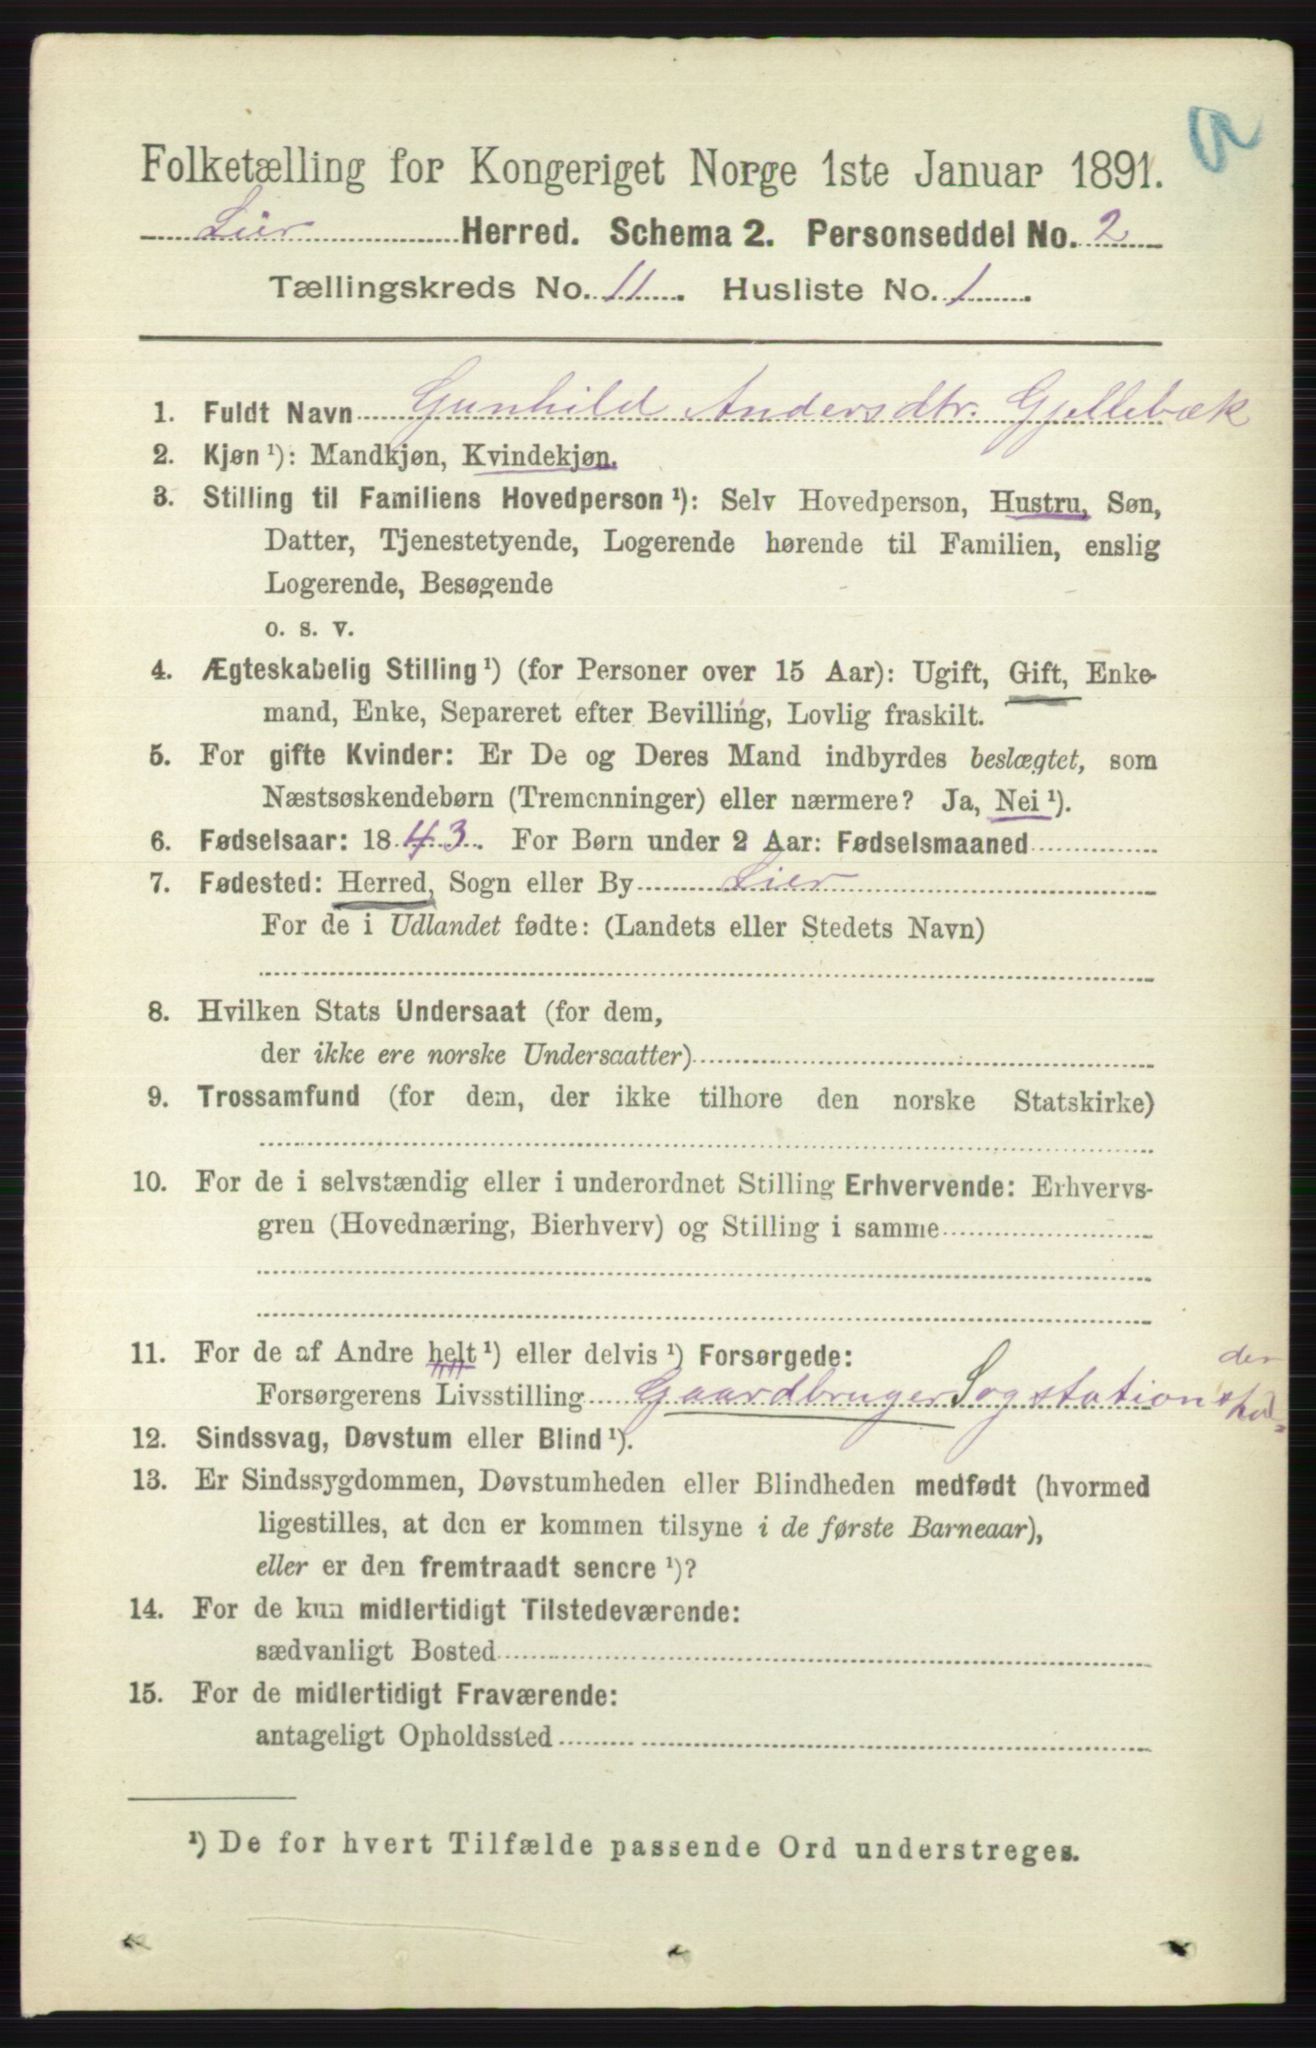 Folketælling for Kongeriget Norge 1ste Januar 1891.
Lier Herred. Schema 2. Personseddel No. 2
Tællingskreds No. 11. Husliste No. 1.
1. Fuldt Navn Gunhild Andersdtr. Gjellebæk
2. Kjøn ¹): Mandkjøn, Kvindekjøn.
3. Stilling til Familiens Hovedperson ¹): Selv Hovedperson, Hustru, Søn,
Datter, Tjenestetyende, Logerende hørende til Familien, enslig
Logerende, Besøgende
o. s. v.
4. Ægteskabelig Stilling ¹) (for Personer over 15 Aar): Ugift, Gift, Enke-
mand, Enke, Separeret efter Bevilling, Lovlig fraskilt.
5. For gifte Kvinder: Er De og Deres Mand indbyrdes beslægtet, som
Næstsøskendebørn (Tremenninger) eller nærmere? Ja, Nei ¹).
6. Fødselsaar: 1843. For Børn under 2 Aar: Fødselsmaaned
7. Fødested: Herred, Sogn eller By Lier
For de i Udlandet fødte: (Landets eller Stedets Navn)
8. Hvilken Stats Undersaat (for dem,
der ikke ere norske Undersaatter)
9. Trossamfund (for dem, der ikke tilhøre den norske Statskirke)
10. For de i selvstændig eller i underordnet Stilling Erhvervende: Erhvervs-
gren (Hovednæring, Bierhverv) og Stilling i samme
11. For de af Andre helt ¹) eller delvis ¹) Forsørgede:
Forsørgerens Livsstilling Gaardbruger
12. Sindssvag, Døvstum eller Blind ¹).
13. Er Sindssygdommen, Døvstumheden eller Blindheden medfødt (hvormed
ligestilles, at den er kommen tilsyne i de første Barneaar),
eller er den fremtraadt senere ¹)?
14. For de kun midlertidigt Tilstedeværende:
sædvanligt Bosted
15. For de midlertidigt Fraværende:
antageligt Opholdssted
¹) De for hvert Tilfælde passende Ord understreges.